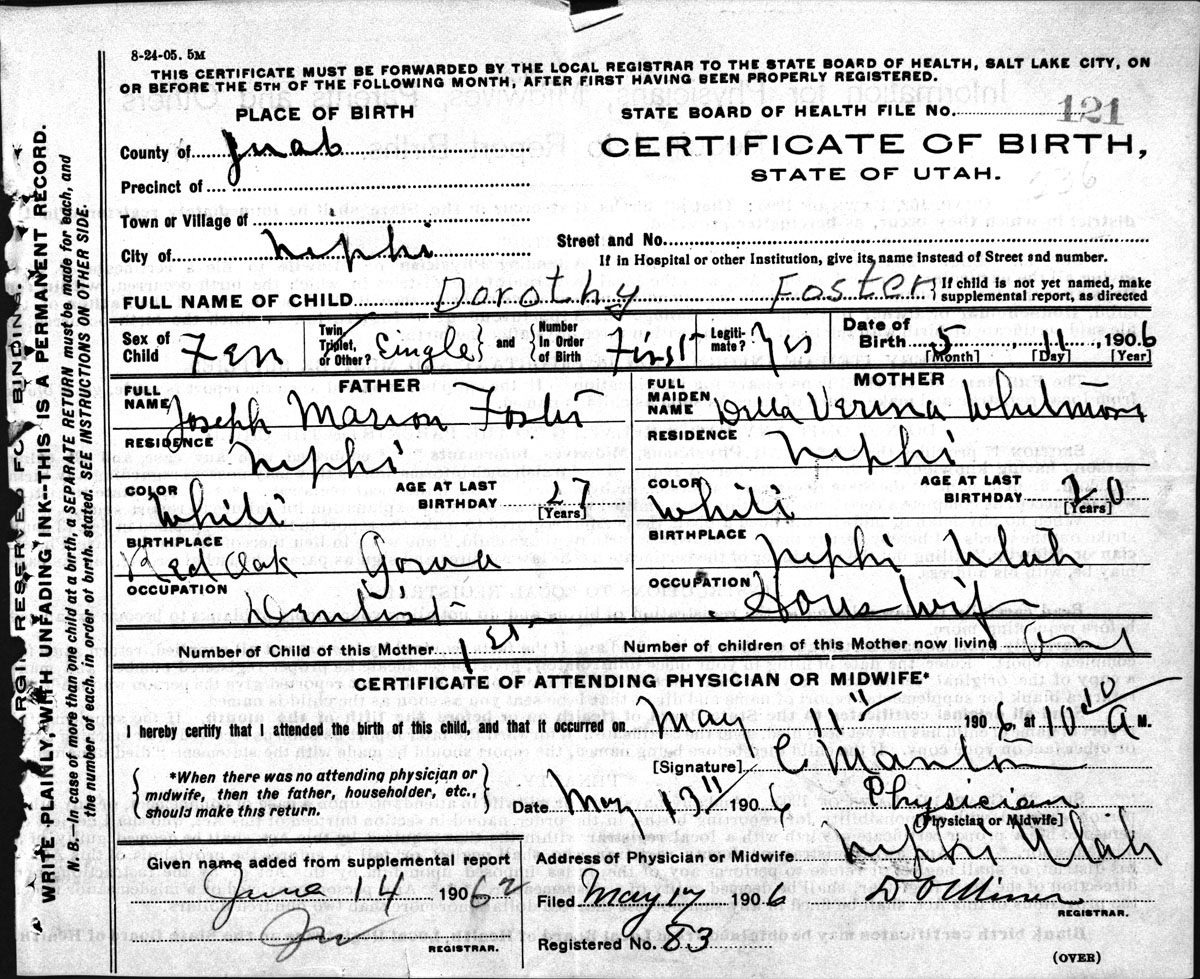 8-24-05. 5M
THIS CERTIFICATE MUST BE FORWARDED BY THE LOCAL REGISTRAR TO THE STATE BOARD OF HEALTH, SALT LAKE CITY, ON
OR BEFORE THE 5TH OF THE FOLLOWING MONTH, AFTER FIRST HAVING BEEN PROPERLY REGISTERED.
PLACE OF BIRTH
STATE BOARD OF HEALTH FILE No. 121
County of Juab
CERTIFICATE OF BIRTH,
STATE OF UTAH.
Precinct of
Town or Village of
City of Nephi
Street and No.
If in Hospital or other Institution, give its name instead of Street and number.
FULL NAME OF CHILD Dorothy Foster { If child is not yet named, make supplemental report, as directed
Sex of Child Fem
Twin, Triplet, or Other? Single } and { Number In Order of Birth First
Legiti-mate? Yes
Date of Birth 5, 11, 1906
[Month] [Day] [Year]
FATHER
FULL NAME Joseph Marion Foster
RESIDENCE Nephi
COLOR White
AGE AT LAST BIRTHDAY 27
[Years]
BIRTHPLACE Red Oak Iowa
OCCUPATION Dentist
MOTHER
FULL MAIDEN NAME Della Verina Whitmore
RESIDENCE Nephi
COLOR White
AGE AT LAST BIRTHDAY 20
[Years]
BIRTHPLACE Nephi Utah
OCCUPATION House wife
Number of Child of this Mother 1st
Number of children of this Mother now living One
CERTIFICATE OF ATTENDING PHYSICIAN OR MIDWIFE*
I hereby certify that I attended the birth of this child, and that it occurred on May 11 1906 at 10 10 A M.
{ *When there was no attending physician or
midwife, then the father, householder, etc.,
should make this return. }
[Signature]
Date May 13" 1906 Physician
[Physician or Midwife]
Address of Physician or Midwife Nephi Utah
Given name added from supplemental report
June 14 1906
REGISTRAR.
Filed May 17 1906
REGISTRAR.
Registered No. 83
(OVER)
MARGIN RESERVED FOR BINDING.
WRITE PLAINLY, WITH UNFADING INK--THIS IS A PERMANENT RECORD.
N. B.--In case of more than one child at a birth, a SEPARATE RETURN must be made for each, and
the number of each, in order of birth, stated. SEE INSTRUCTIONS ON OTHER SIDE.